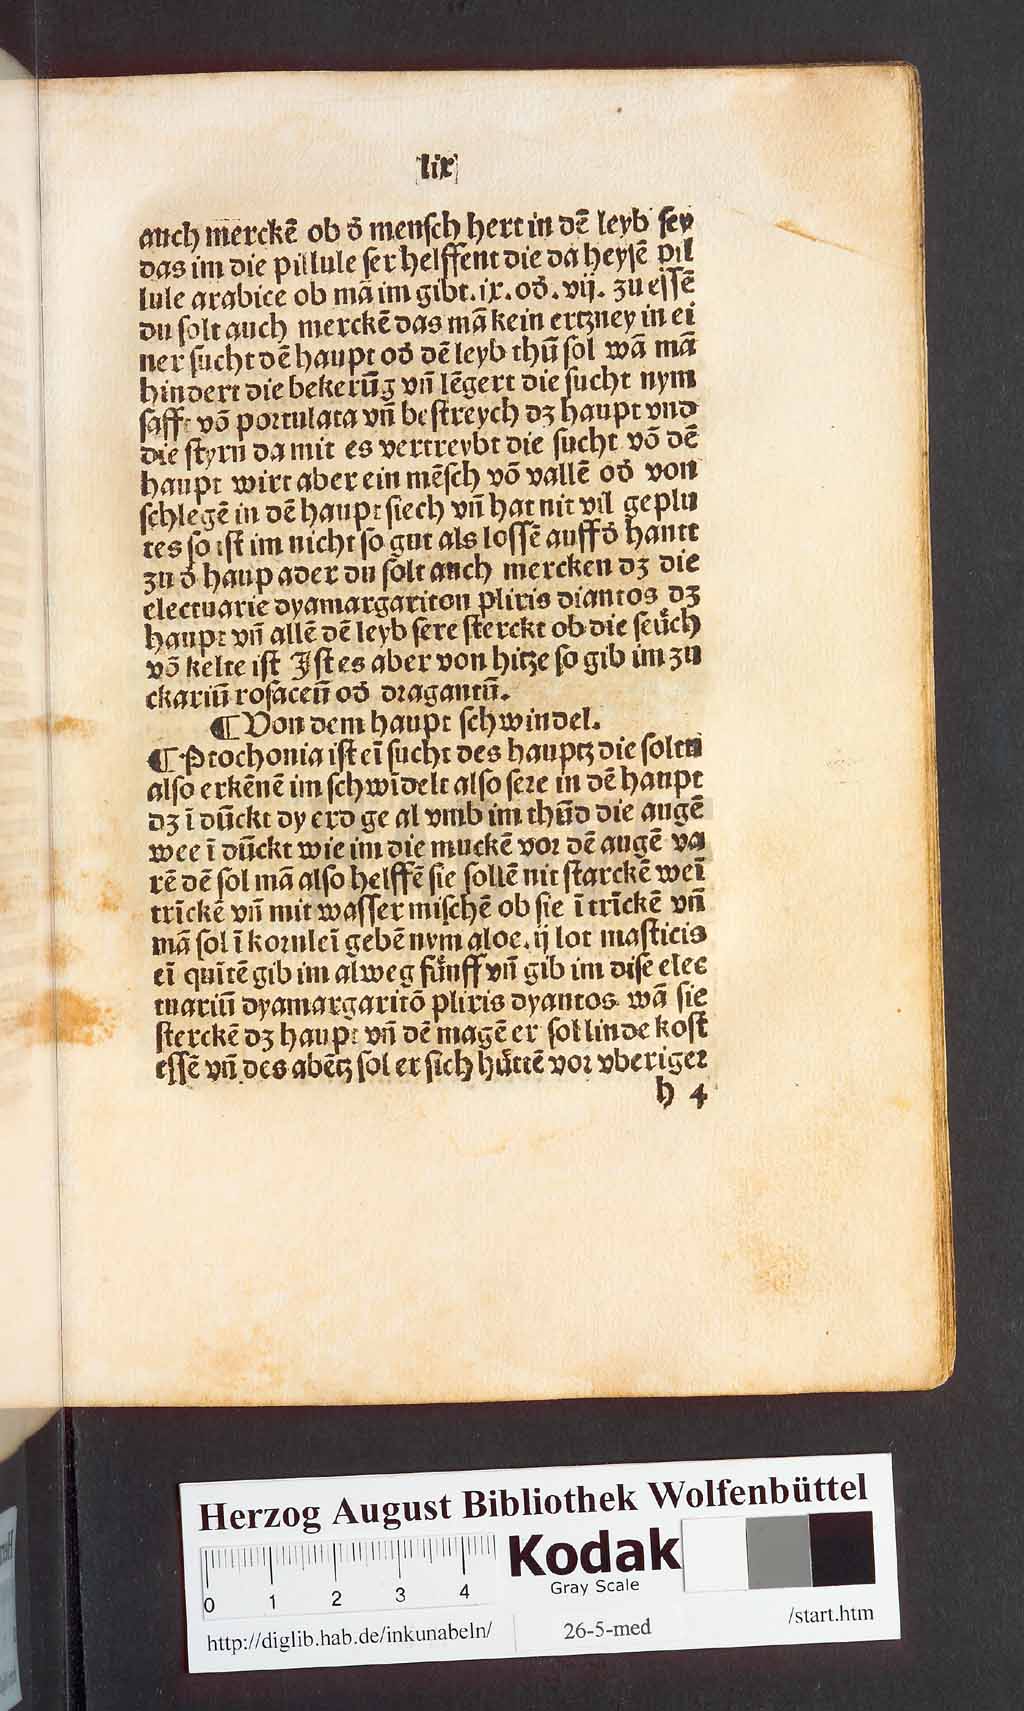 lix
auch merckẽ ob d̓ menſch hert in dẽ leyb ſey
das im die pillule ſer helffent die da heyſẽ pil
lule arabice ob mã im gibt.ix.od̓.vij. zu eſſẽ
du ſolt auch merckẽ das mã kein ertzney in ei
ner ſucht dẽ haupt od̓ dẽ leyb thũ ſol wã mã
hindert die bekerũg vñ lẽgert die ſucht nym
ſafft võ portulata vñ beſtreych dʒ haupt vnd
die ſtyrn da mit es vertreybt die ſucht võ dẽ
haupt wirt aber ein mẽſch võ vallẽ od̓ von
ſchlegẽ in dẽ haupt ſiech vñ hat nit vil geplu
tes ſo iſt im nicht ſo gut als loſſẽ auff d̓ hantt
zu d̓ haup ader du ſolt auch mercken dʒ die
electuarie dyamargariton pliris diantos dʒ
haupt vñ allẽ dẽ leyb ſere ſterckt ob die ſeuͤch
võ kelte iſt Iſt es aber von hitze ſo gib im zu
ckariũ roſaceũ od̓ dragantũ.
¶ Von dem haupt ſchwindel.
¶ Ptochonia iſt eĩ ſucht des hauptz die ſoltu
alſo erkẽnẽ im ſchwĩdelt alſo ſere in dẽ haupt
dʒ ĩ dũckt dy erd ge al vmb im thũd die augẽ
wee ĩ dũckt wie im die muckẽ vor dẽ augẽ va
rẽ dẽ ſol mã alſo helffẽ ſie ſollẽ nit ſtarckẽ weĩ
trĩckẽ vñ mit waſſer miſchẽ ob ſie ĩ trĩckẽ vñ
mã ſol ĩ kornleĩ gebẽ nym aloe.ij lot maſticis
eĩ quĩtẽ gib im alweg fuͤnff vñ gib im diſe elec
tuariũ dyamargaritõ pliris dyantos. wã ſie
ſterckẽ dʒ haupt vñ dẽ magẽ er ſol linde koſt
eſſẽ vñ des abẽtz ſol er ſich huͤttẽ vor vberiger
h 4
Herzog August Bibliothek Wolfenbüttel
0 1 2 3 4
Kodak
Gray Scale
http://diglib.hab.de/inkunabeln/ 26-5-med /start.htm